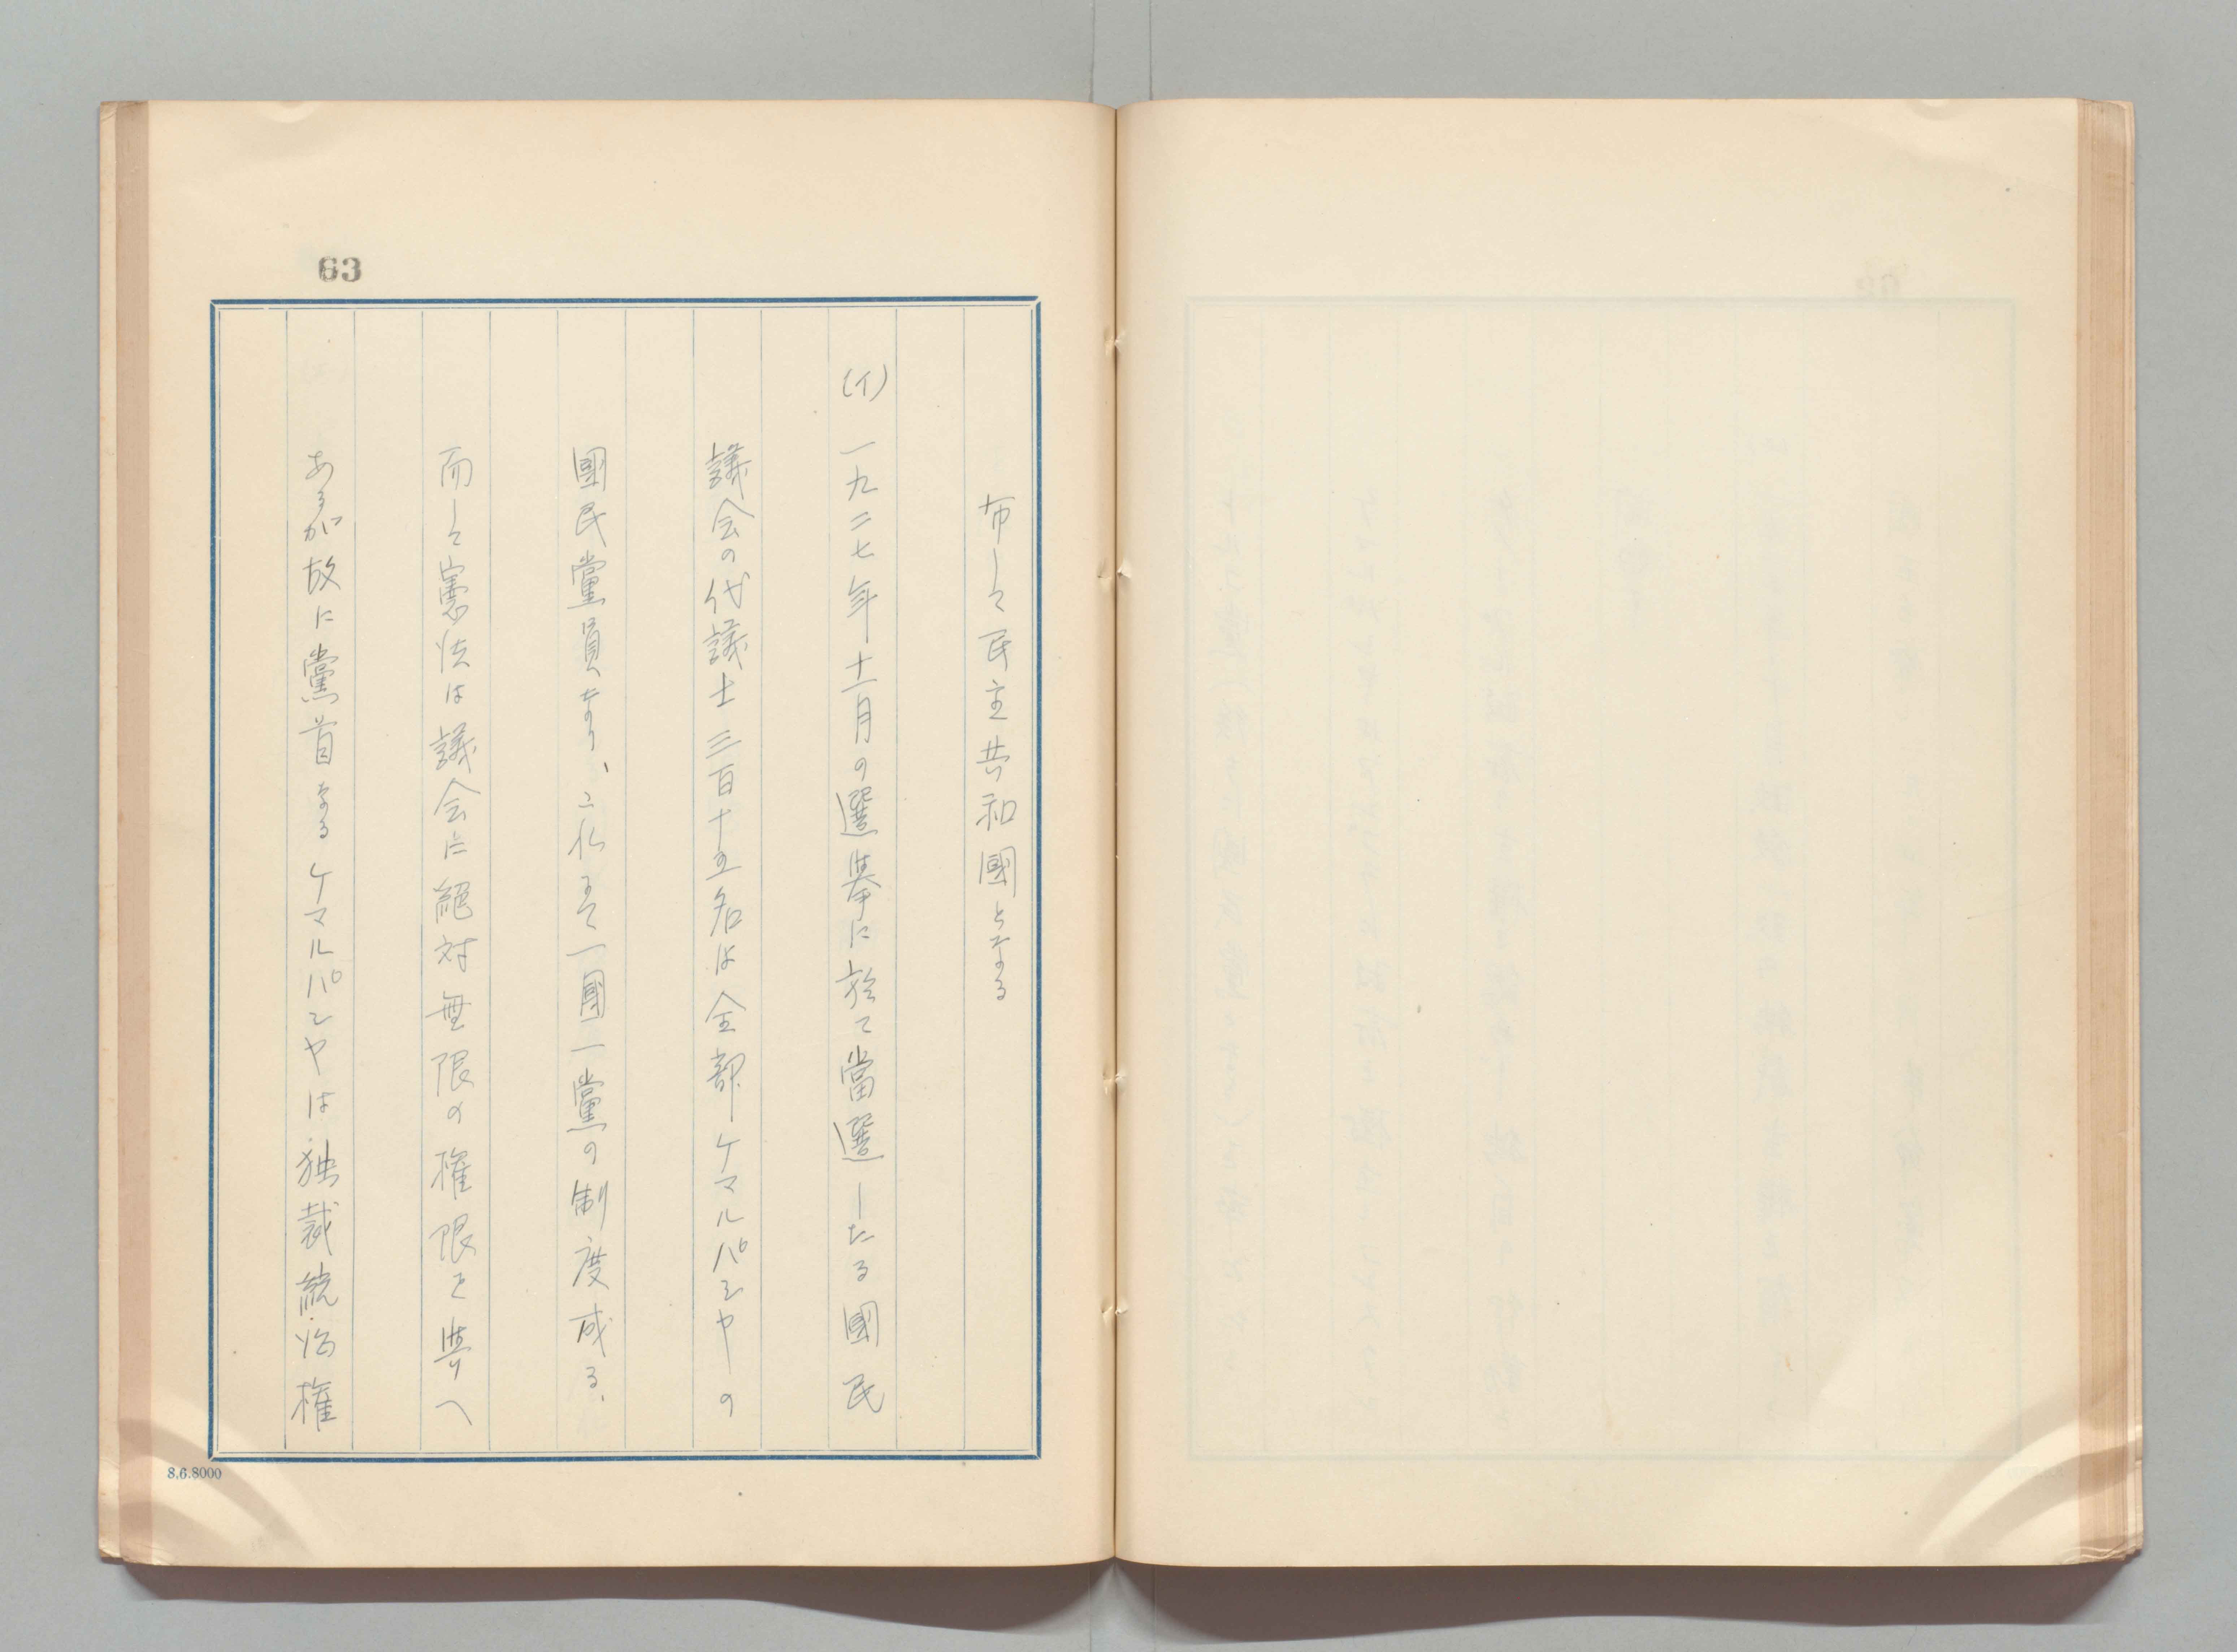 63
布して民主共和國となる
(イ) 一九二七年十一月の選挙に於て當選したる國民
議会の代議士三百十五名は全部ケマルパシヤーの
國民黨員なり、これ一國一黨の制度成る、
而して憲法は議会に絶対無限の権限を與へ
あるが故に黨首なるケマルパシヤは独裁統治権
8.6.8000